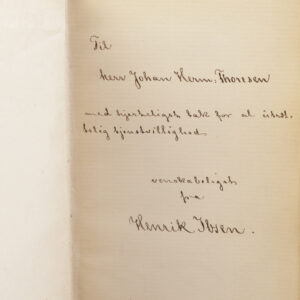 Til
herr Johan Herm: Thoresen
med hjerteligst tak for al utræt-
telig tjenstvillighed
venskabeligst
fra
Henrik Ibsen.